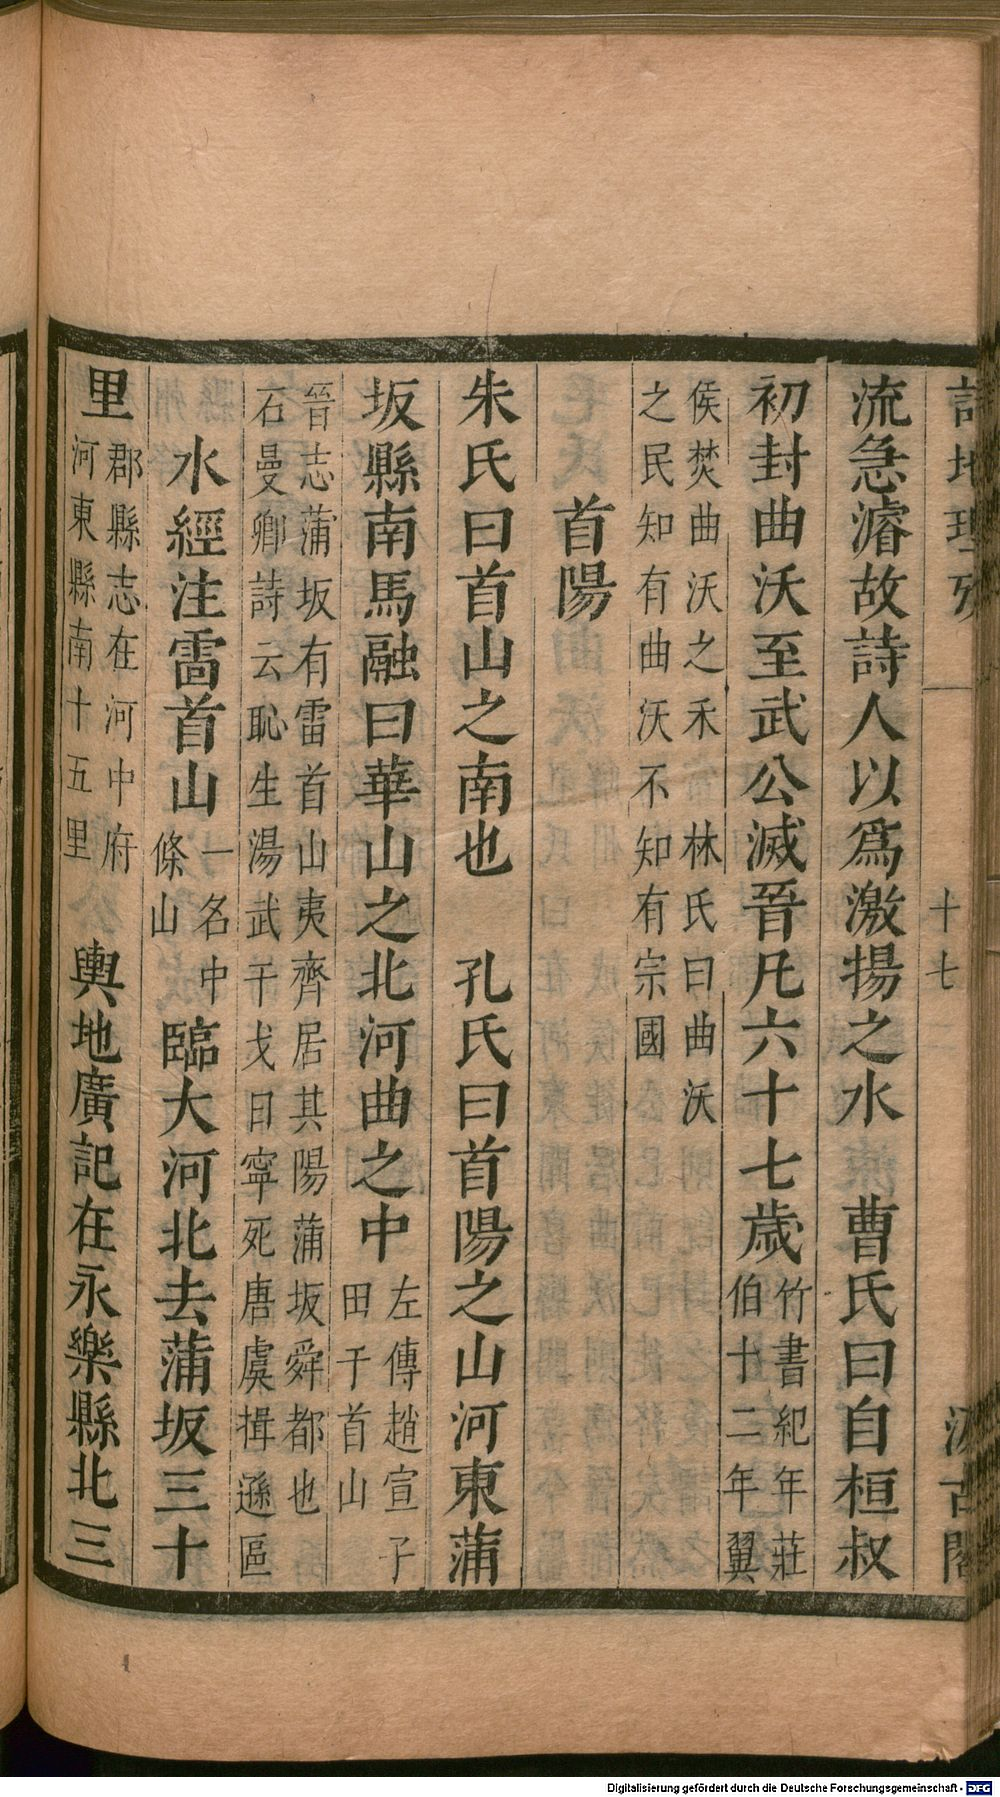 詩地理攷 十七 汲古閣
流急濬故詩人以為激揚之水 曹氏曰自桓叔
初封曲沃至武公滅晉凡六十七歲竹書紀年莊伯十二年翼
侯焚曲沃之禾 林氏曰曲沃之民知有曲沃不知有宗國
首陽
朱氏曰首山之南也 孔氏曰首陽之山河東蒲
坂縣南馬融曰華山之北河曲之中左傳趙宣子田于首山
晉志蒲坂有雷首山夷齊居其陽蒲坂舜都也石曼卿詩云恥生湯武干戈日寧死唐虞揖遜區
水經注雷首山一名中條山臨大河北去蒲坂三十
里郡縣志在河中府河東縣南十五里 輿地廣記在永樂縣北三
Digitalisierung gefördert durch die Deutsche Forschungsgemeinschaft - DFG